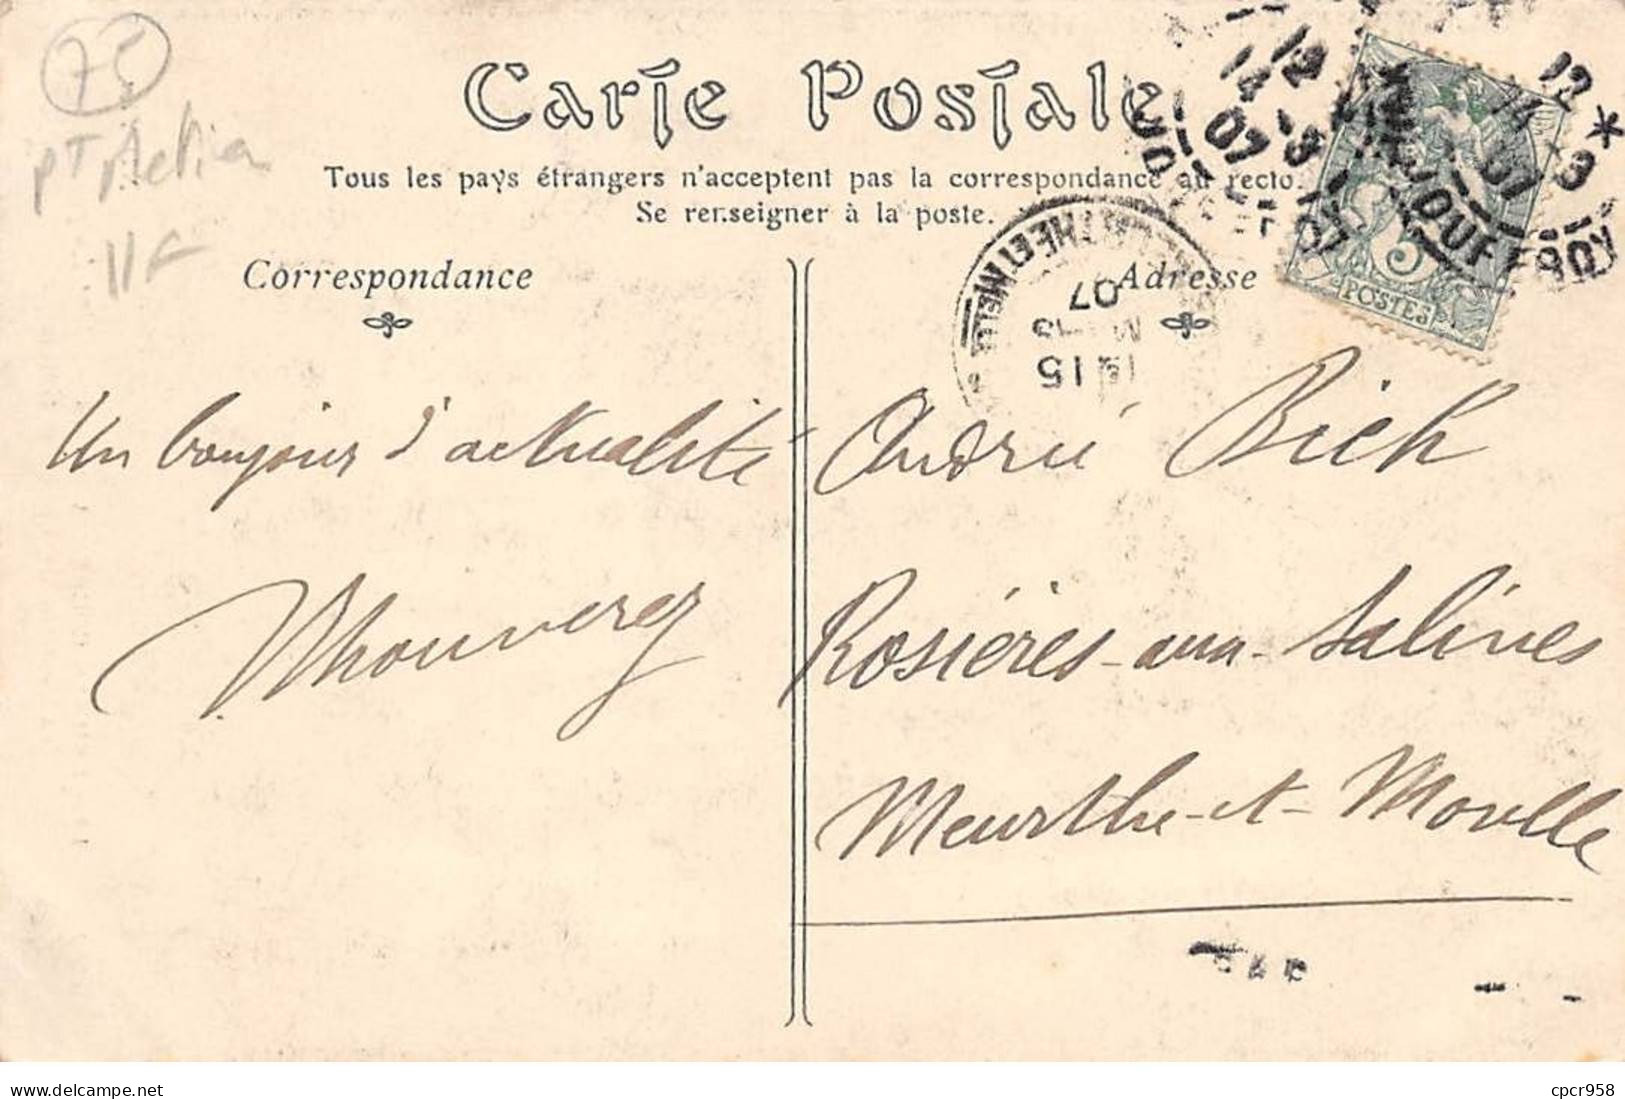 75
pT
Carte Postale
Tous les pays étrangers n'acceptent pas la correspondance au recto.
Se renseigner à la poste.
Correspondance
Adresse
12
14 -3
07
12 *
14 -3
07
5
POSTES
MEURTHE ET MELLE
15
07
Un bonjour d'actualité
André Bich
Rosières-aux-Salines
Meurthe-et-Moselle
www.delcampe.net
cpcr958